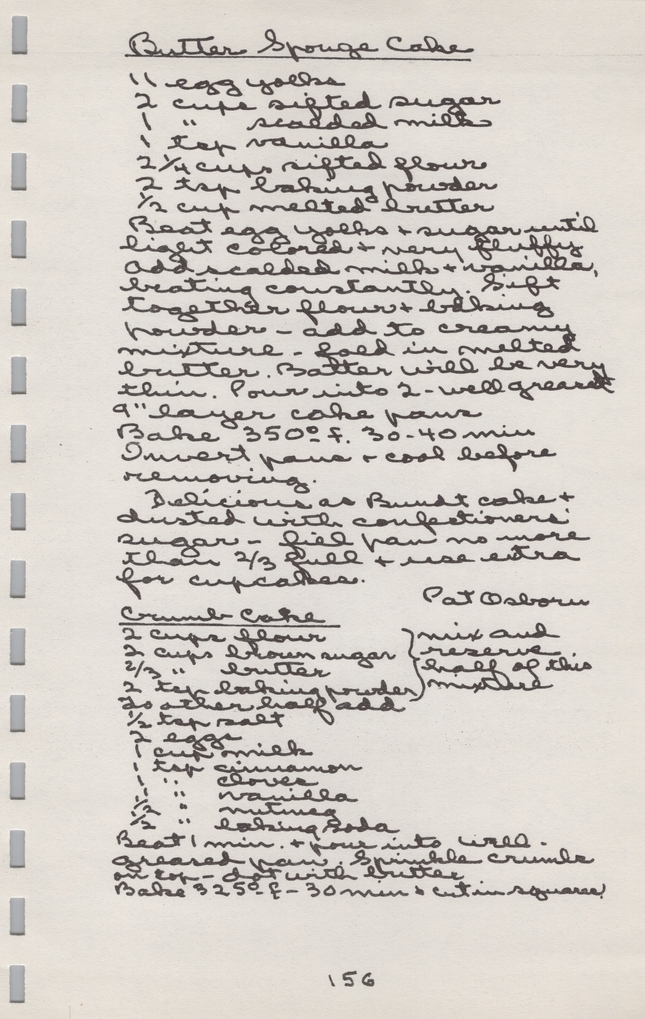 Butter Sponge Cake
11 egg yolks
2 cups sifted sugar
1 " scalded milk
1 tsp vanilla
2 1/4 cups sifted flour
2 tsp baking powder
1/2 cup melted butter
Beat egg yolks + sugar until
light colored + very fluffy
add scalded milk + vanilla,
beating constantly. Sift
together flour + baking
powder - add to creamy
mixture - fold in melted
butter. Batter will be very
thin. Pour into 2 - well greased
9" layer cake pans
Bake 350° f. 30-40 min
Invert pans + cool before
removing.
Delicious as Bundt cake +
dusted with confectioners'
sugar - fill pan no more
than 2/3 full + use extra
for cupcakes.
Pat Osborn
Crumb Cake
2 cups flour } mix and
2 cups brown sugar reserve
2/3 " butter half of this
2 tsp baking powder mixture
To other half add
1/2 tsp salt
2 eggs
1 cup milk
1 tsp cinnamon
1 " cloves
1 " vanilla
1/2 " nutmeg
1/2 " baking soda
Beat 1 min. + pour into well -
greased pan. Sprinkle crumbs
on top - dot with butter
Bake 325° f - 30 min + cut in squares
156